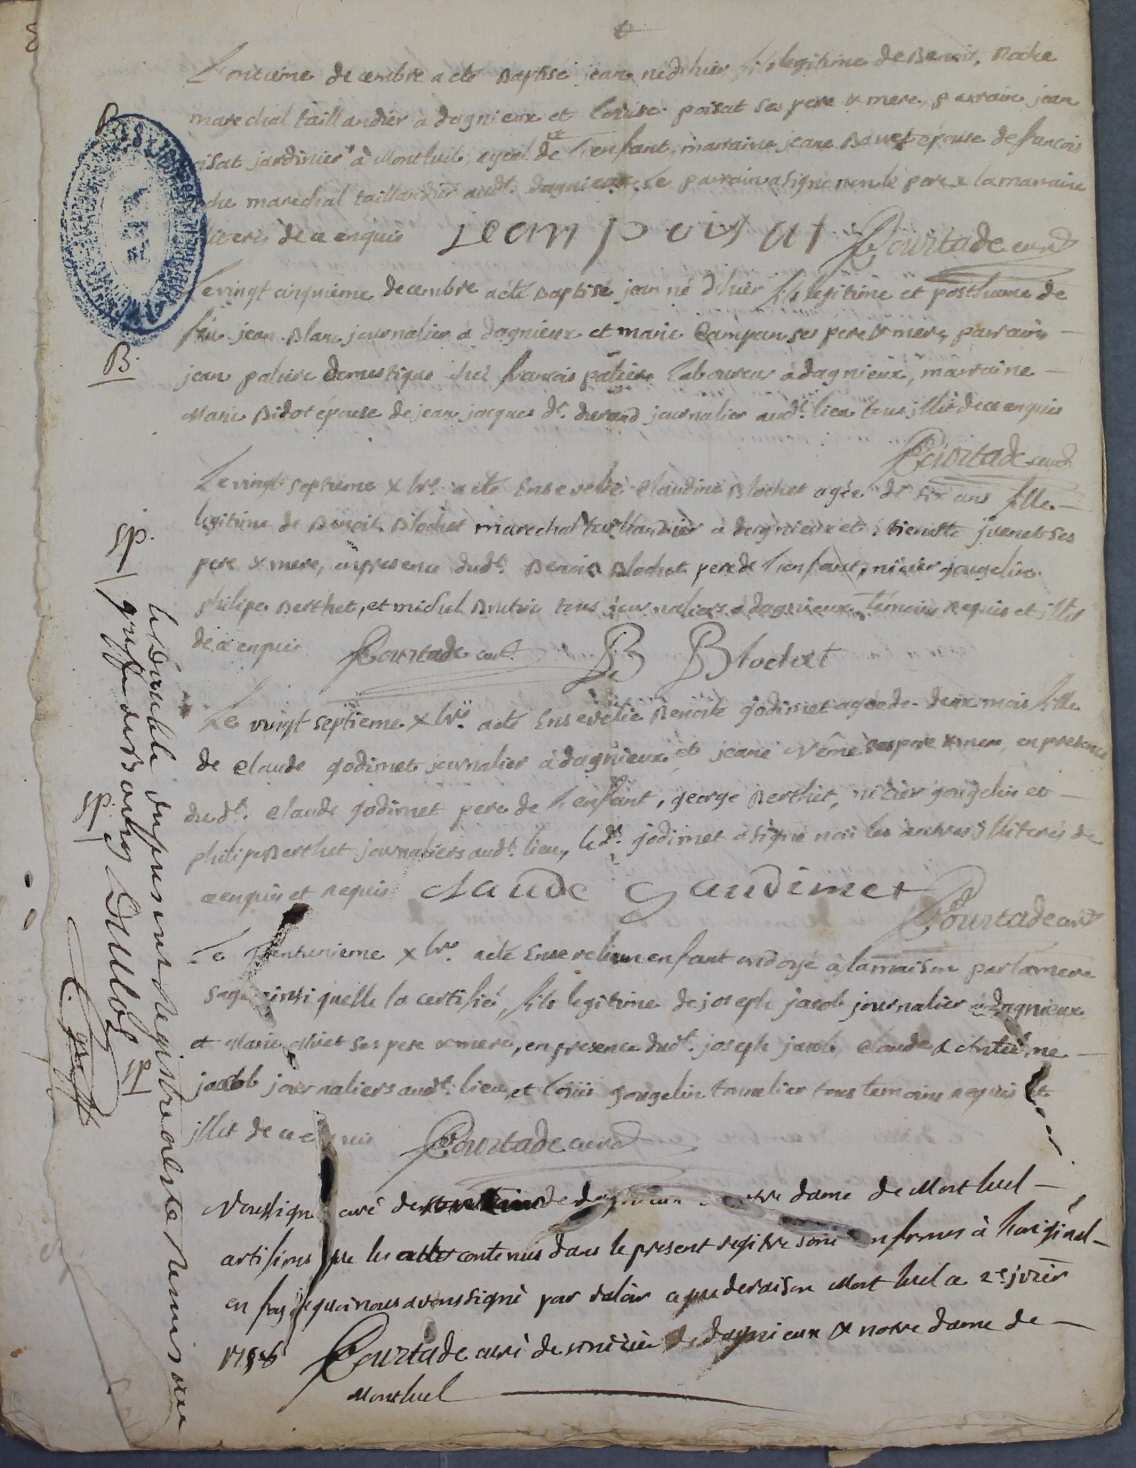 L'onzieme decembre a eté Baptisé jean né d'hier fils legitime de Benoit Roche
marechal taillandier a dagnieux et Louise poisat ses pere & mere, parrain jean
jardinier à Montluel ayeul de l'enfant, marraine jeane epouse de francois
marechal taillandier audt. dagnieux, le parrain a signé non le pere & la marraine
de ce enquis jean poisat Courtade curé
B.
Le vingt cinquieme decembre a eté Baptisé jean né d'hier fils legitime et posthume de
feu jean Blanc journalier a dagnieux et marie Campan ses pere & mere, parrain
jean paliere domestique chez francois paliere Laboureur a dagnieux, marraine
Marie Bidot épouse de jean jacques dt. durand journalier audt. lieu tous illit de ce enquis
Courtade curé
Le vingt septieme xbre. a eté Ensevelie Claudine Blochet agée de six ans fille
legitime de Benoit Blochet marechal taillandier a dagnieux et pierrette juenet ses
pere & mere, en presence dudt. Benoit Blochet pere de l'enfant, nizier gougelin
philipe Berthet, et michel tous journaliers a dagnieux, témoins requis et illit
de ce enquis Courtade curé. B Blochet
Le vingt septieme xbre. a eté Ensevelie Benoite godimet agée de deux mois fille
de Claude godimet journalier à dagnieux et jeane ses pere & mere, en presence
dudt. Claude godimet pere de l'enfant, george Berthet, nizier gougelin et
philipe Berthet journaliers audt. lieu, le dt. godimet a signé non les autres illiterés de
ce enquis et requis Claude gaudimet
Courtade curé
Le trentunieme xbre. a eté Enseveli un enfant ondoyé à la maison par la mere
sage ainsi quelle la certifié, fils legitime de joseph jacob journalier à dagnieux
et Marie ses pere & mere, en presence dudt. joseph jacob Claude & Antoine
jacob journaliers audt. lieu, et Louis gougelin tonnelier tous temoins requis et
illit de ce enquis Courtade curé
Nous signé curé de de dagnieux notre dame de Montluel
certifions que les actes contenus dans le present registre sont conformes à l'original
en foy de quoi nous avons signé pour valoir a que de raison Montluel ce 2e. jvier
Courtade curé de st nizier de dagnieux & notre dame de
Montluel
le Double du present Registre a este Remis au
greffe du Bourg